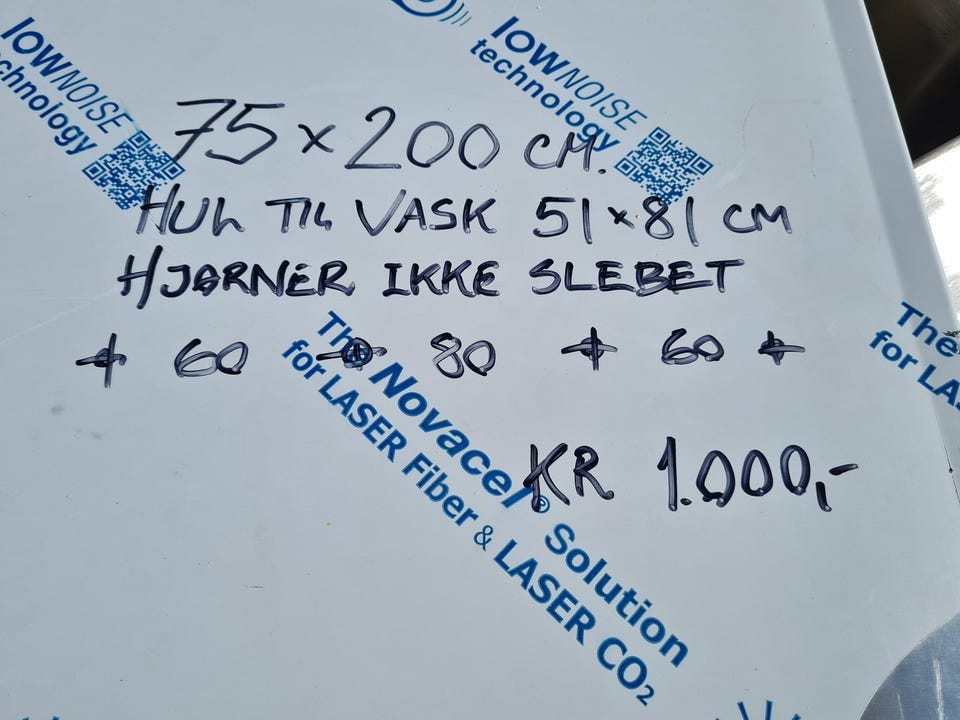 lowNOISE
technology
lowNOISE
technology
75 x 200 CM.
HUL TIL VASK 51 x 81 CM
HJØRNER IKKE SLEBET
60 80 60
The Novacel® Solution
for LASER Fiber & LASER CO₂
The
for LA
KR 1.000,-